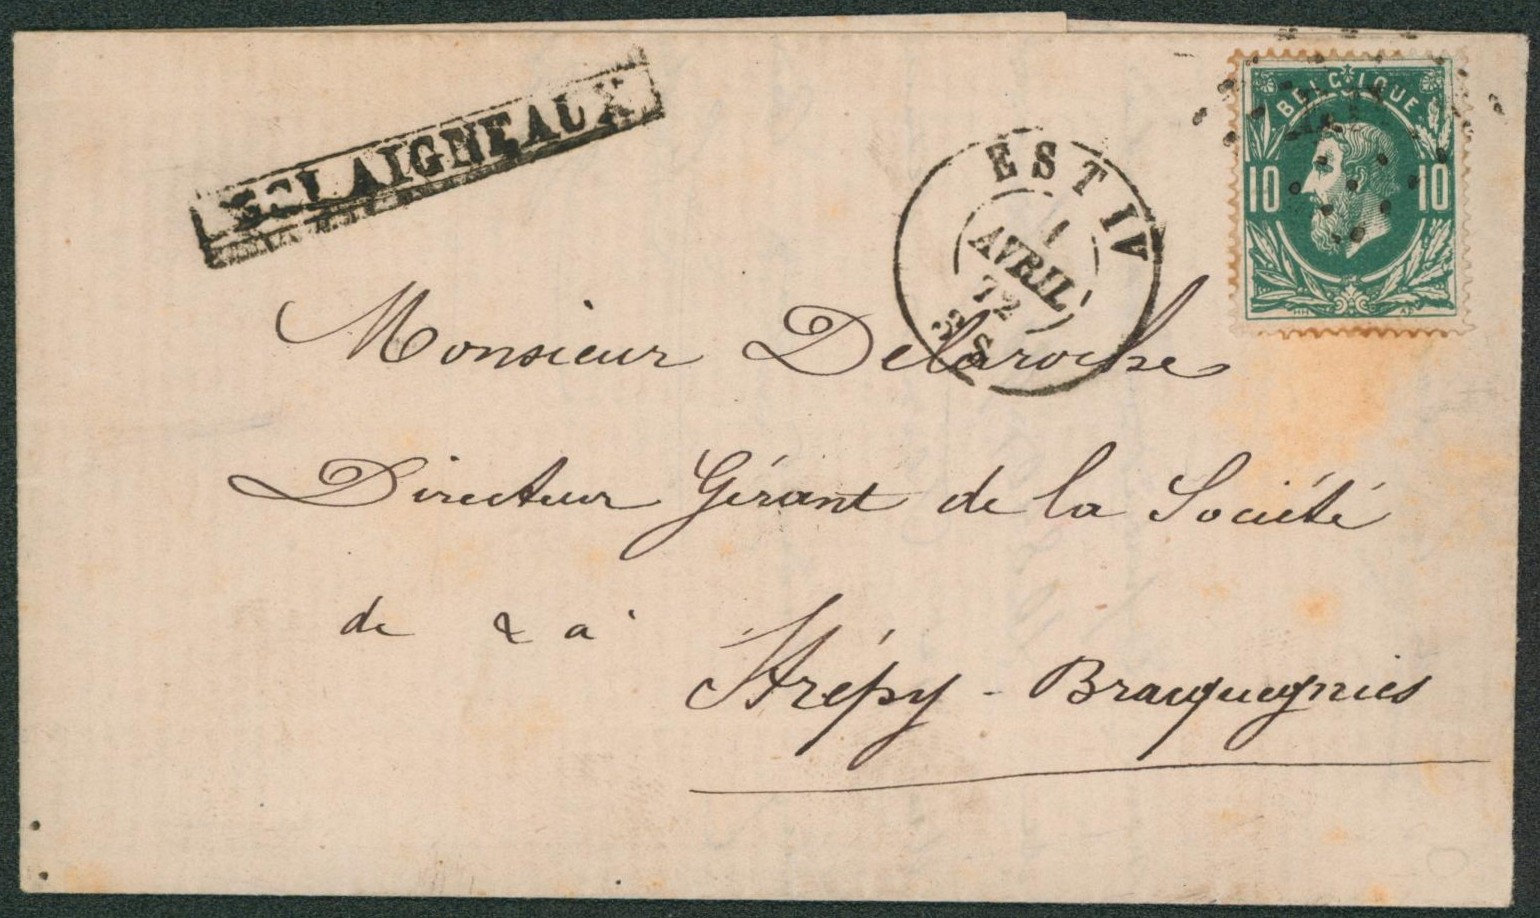 SCLAIGNEAUX
EST IV
1
AVRIL
72
3 S
BELGIQUE
10 10
Monsieur Delaroche
Directeur Gérant de la Société
de & à
Strépy - Bracquegnies